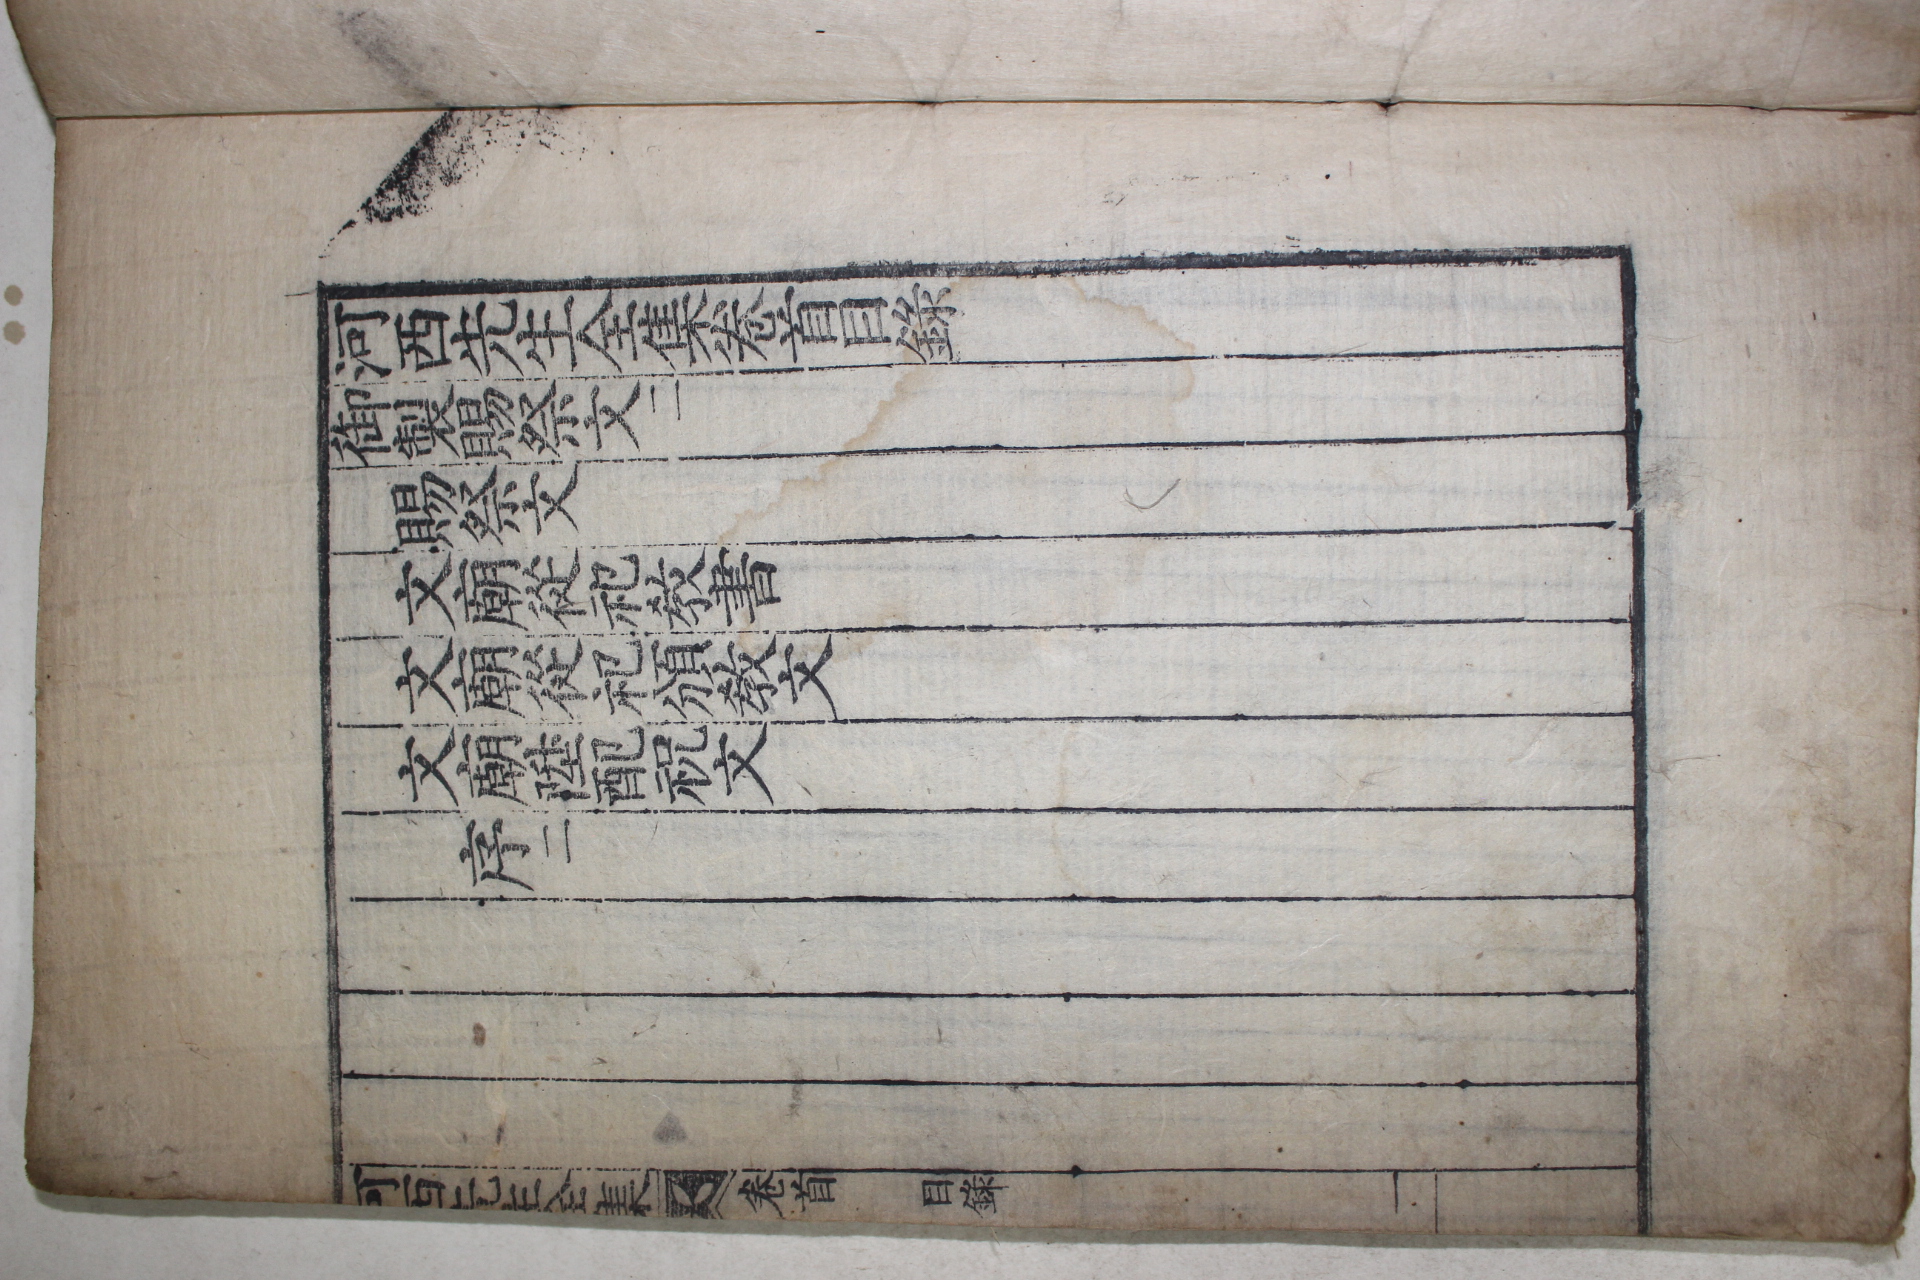 河西先生全集卷首目錄
御製賜祭文二
賜祭文
文廟從祀敎書
文廟從祀頒敎文
文廟陞配祝文
序二
河西先生全集 卷首 目錄 一